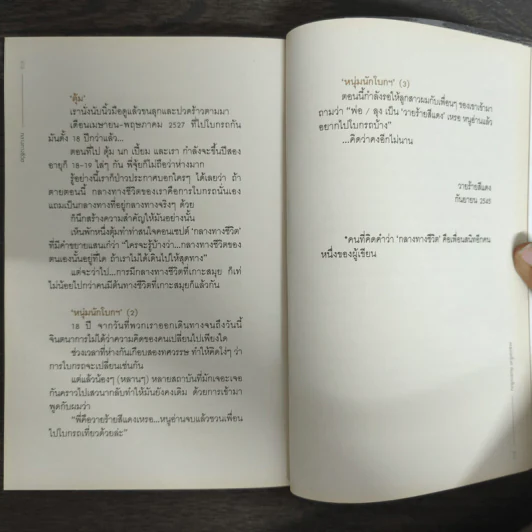 'ตุ้ม'
เรานั่งนับนิ้วมือดูแล้วขนลุกและปวดร้าวตามมา
เดือนเมษายน-พฤษภาคม 2527 ที่ไปโบกรถกัน
มันตั้ง 18 ปีกว่าแล้ว...
ตอนที่ไป ตุ้ม นก เปี้ยม และเรา กำลังจะขึ้นปีสอง
อายุก็ 18-19 ไล่ๆ กัน พี่จุ้ยก็ไม่ถือว่าห่างมาก
รู้อย่างนี้เราก็ป่าวประกาศบอกใครๆ ได้เลยว่า ถ้า
ตายตอนนี้ กลางทางชีวิตของเราคือการไปโบกรถนั่นเอง
แถมเป็นกลางทางที่อยู่กลางทางจริงๆ ด้วย
ก็นึกสร้างความสำคัญให้มันอย่างนั้น
เห็นพักหนึ่งตุ้มทำท่าสนใจคอนเซปต์ 'กลางทางชีวิต'
ที่มีคำขยายแสนเก๋ว่า "ใครจะรู้บ้างว่า...กลางทางชีวิตของ
ตนเองนั้นอยู่ที่ใด ถ้าเราไม่ได้เดินไปให้สุดทาง"
แต่จะว่าไป...การมีกลางทางชีวิตที่เกาะสมุย ก็เท่
ไม่น้อยไปกว่าคนมีต้นทางชีวิตที่เกาะสมุยก็แล้วกัน
'หนุ่มนักโบกฯ' (2)
18 ปี จากวันที่พวกเราออกเดินทางจนถึงวันนี้
จินตนาการไม่ได้ว่าความคิดของคนเปลี่ยนไปเพียงใด
ช่วงเวลาที่ห่างกันเกือบสองทศวรรษ ทำให้คิดไงๆ ว่า
การโบกรถจะเปลี่ยนเช่นกัน
แต่แล้วน้องๆ (หลานๆ) หลายสถาบันที่มักเจอะเจอ
กันคราวไปเสวนากลับทำให้มันยังคงเดิม ด้วยการเข้ามา
พูดกับผมว่า
"พี่คือวายร้ายสีแดงเหรอ...หนูอ่านจบแล้วชวนเพื่อน
ไปโบกรถเที่ยวด้วยล่ะ"
'หนุ่มนักโบกฯ' (3)
ตอนนี้กำลังรอให้ลูกสาวผมกับเพื่อนๆ ของเราเข้ามา
ถามว่า "พ่อ / ลุง เป็น 'วายร้ายสีแดง' เหรอ หนูอ่านแล้ว
อยากไปโบกรถบ้าง"
...คิดว่าคงอีกไม่นาน
วายร้ายสีแดง
กันยายน 2545
*คนที่คิดคำว่า 'กลางทางชีวิต' คือเพื่อนสนิทอีกคน
หนึ่งของผู้เขียน